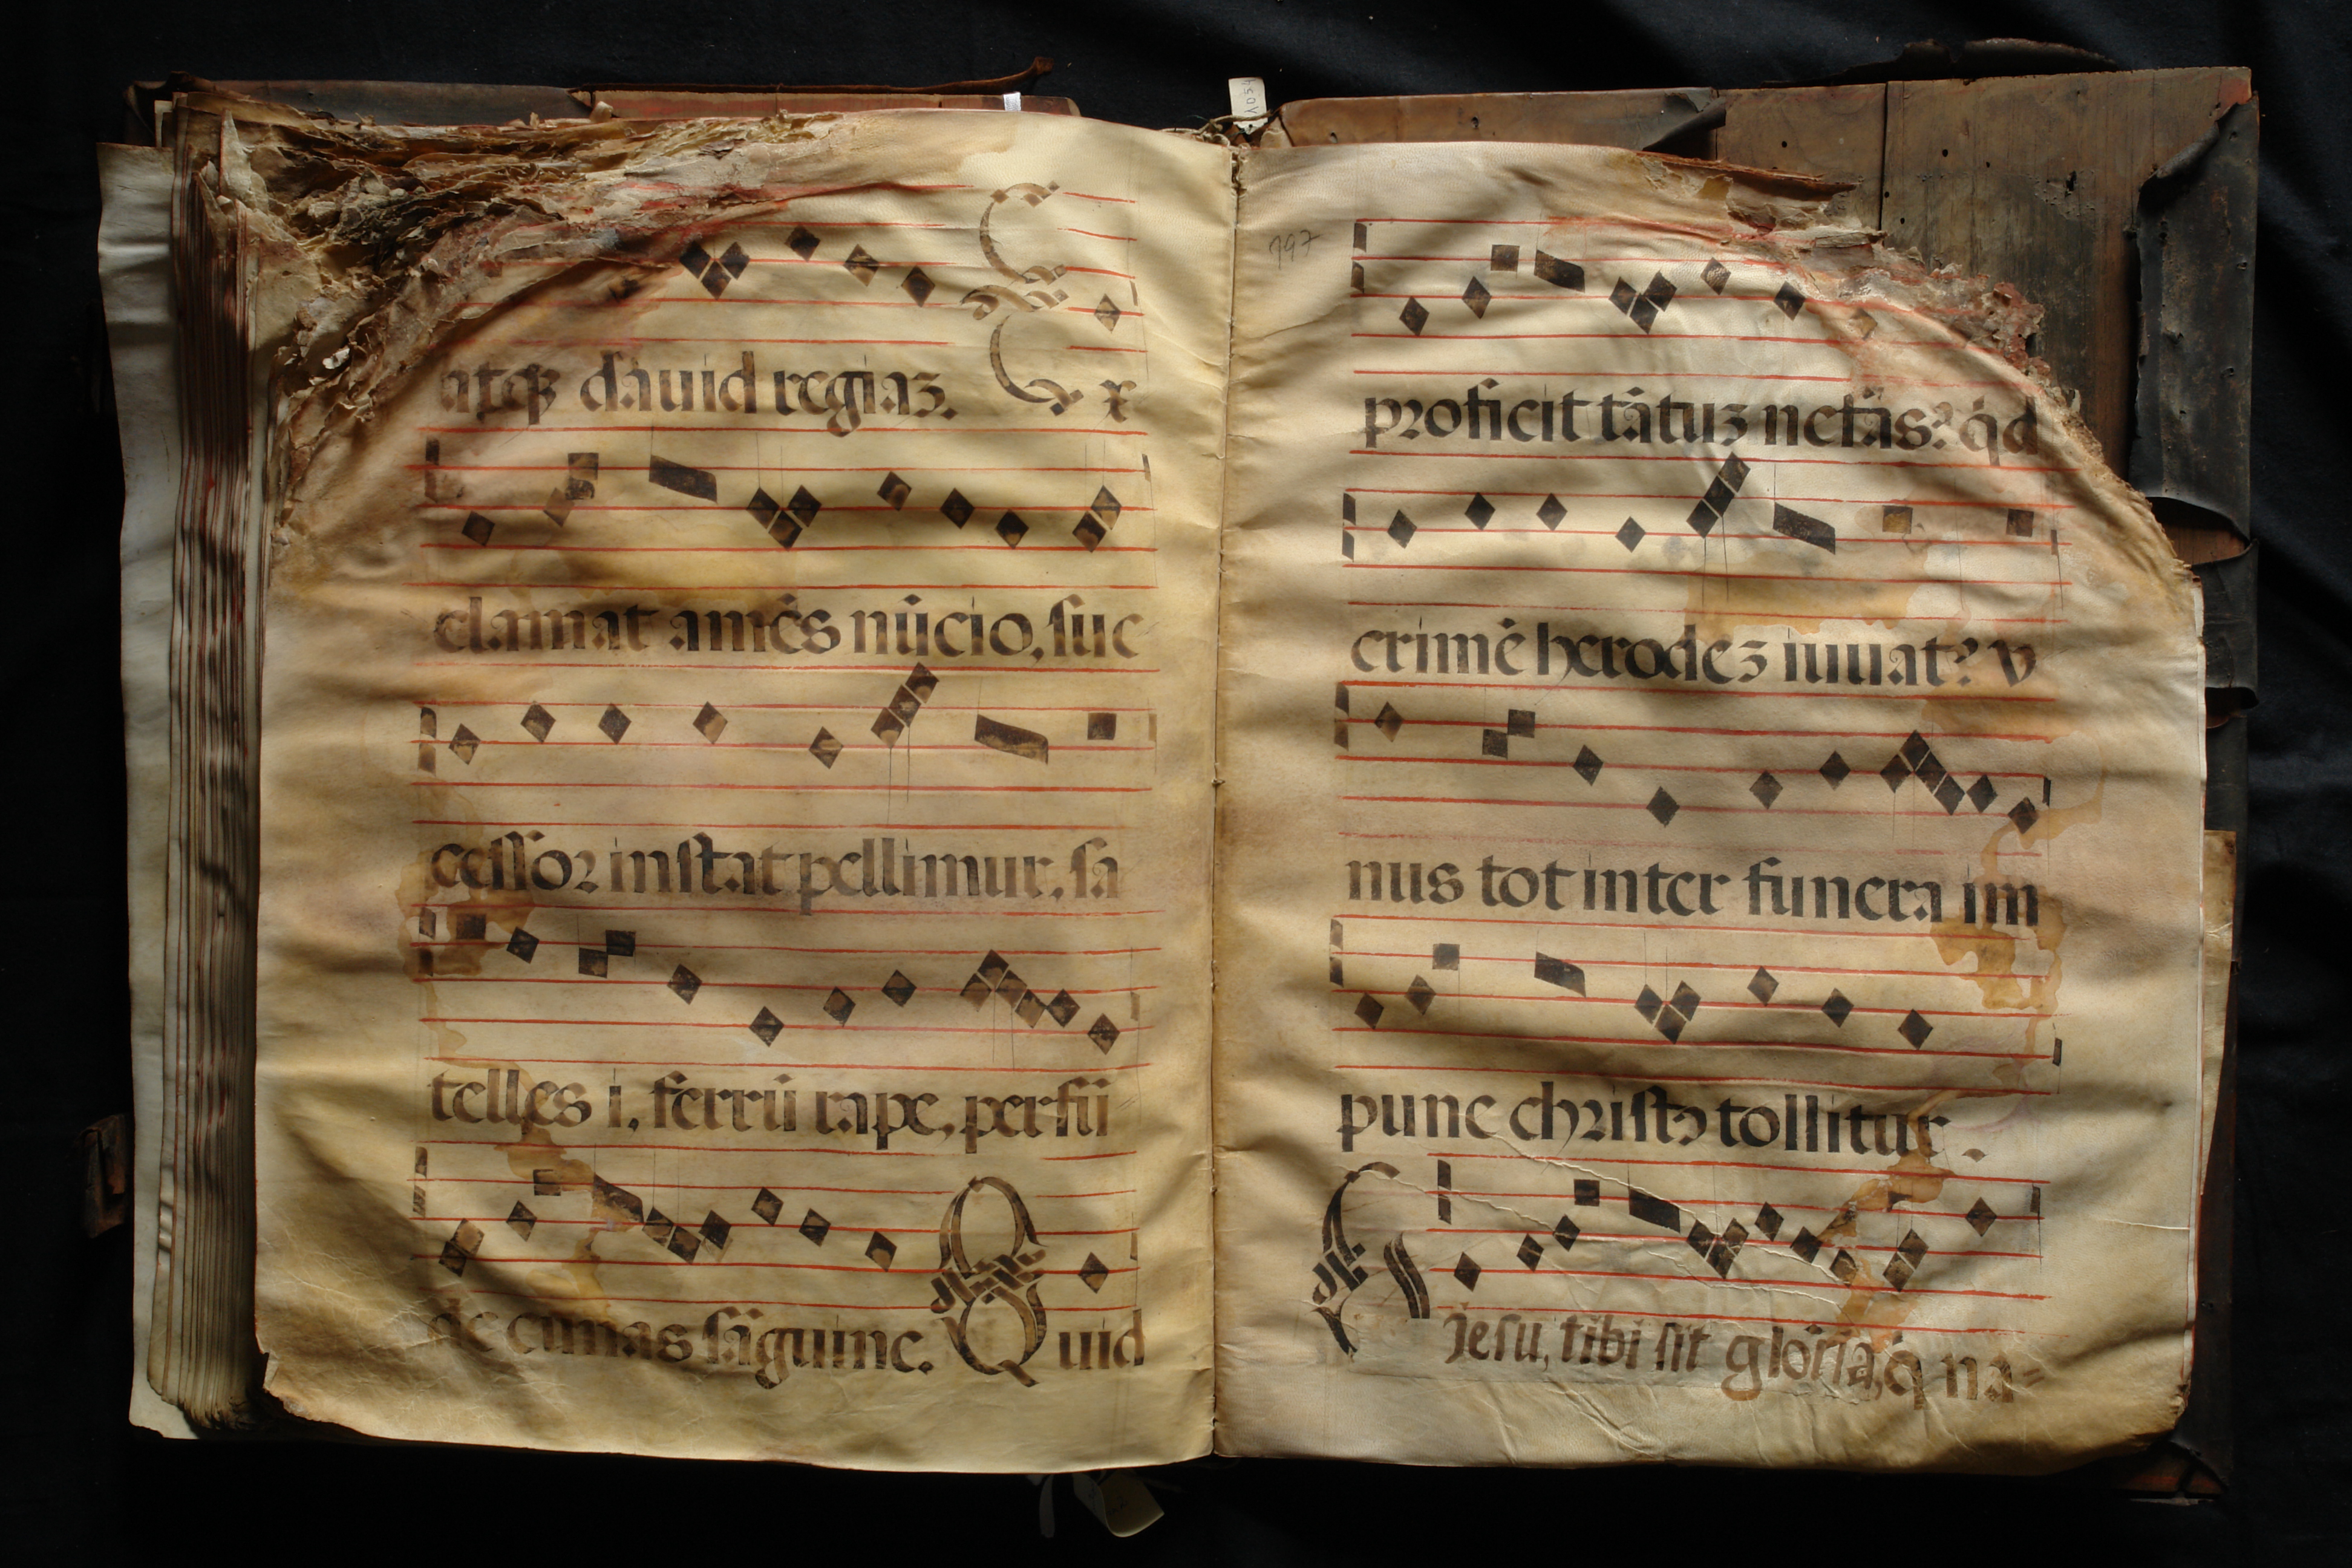 atqꝫ dauid regiaꝫ. Ex
clamat amēs nūcio, suc
cessor instat pellimur. sa
telles i, ferrū rape, perfū
de cunas sāguine. Quid
197
proficit tātuꝫ nefas? qd
crimē herodeꝫ iuuat? v
nus tot inter funera im
pune christꝰ tollitur.
Jesu, tibi sit gloria, q na=